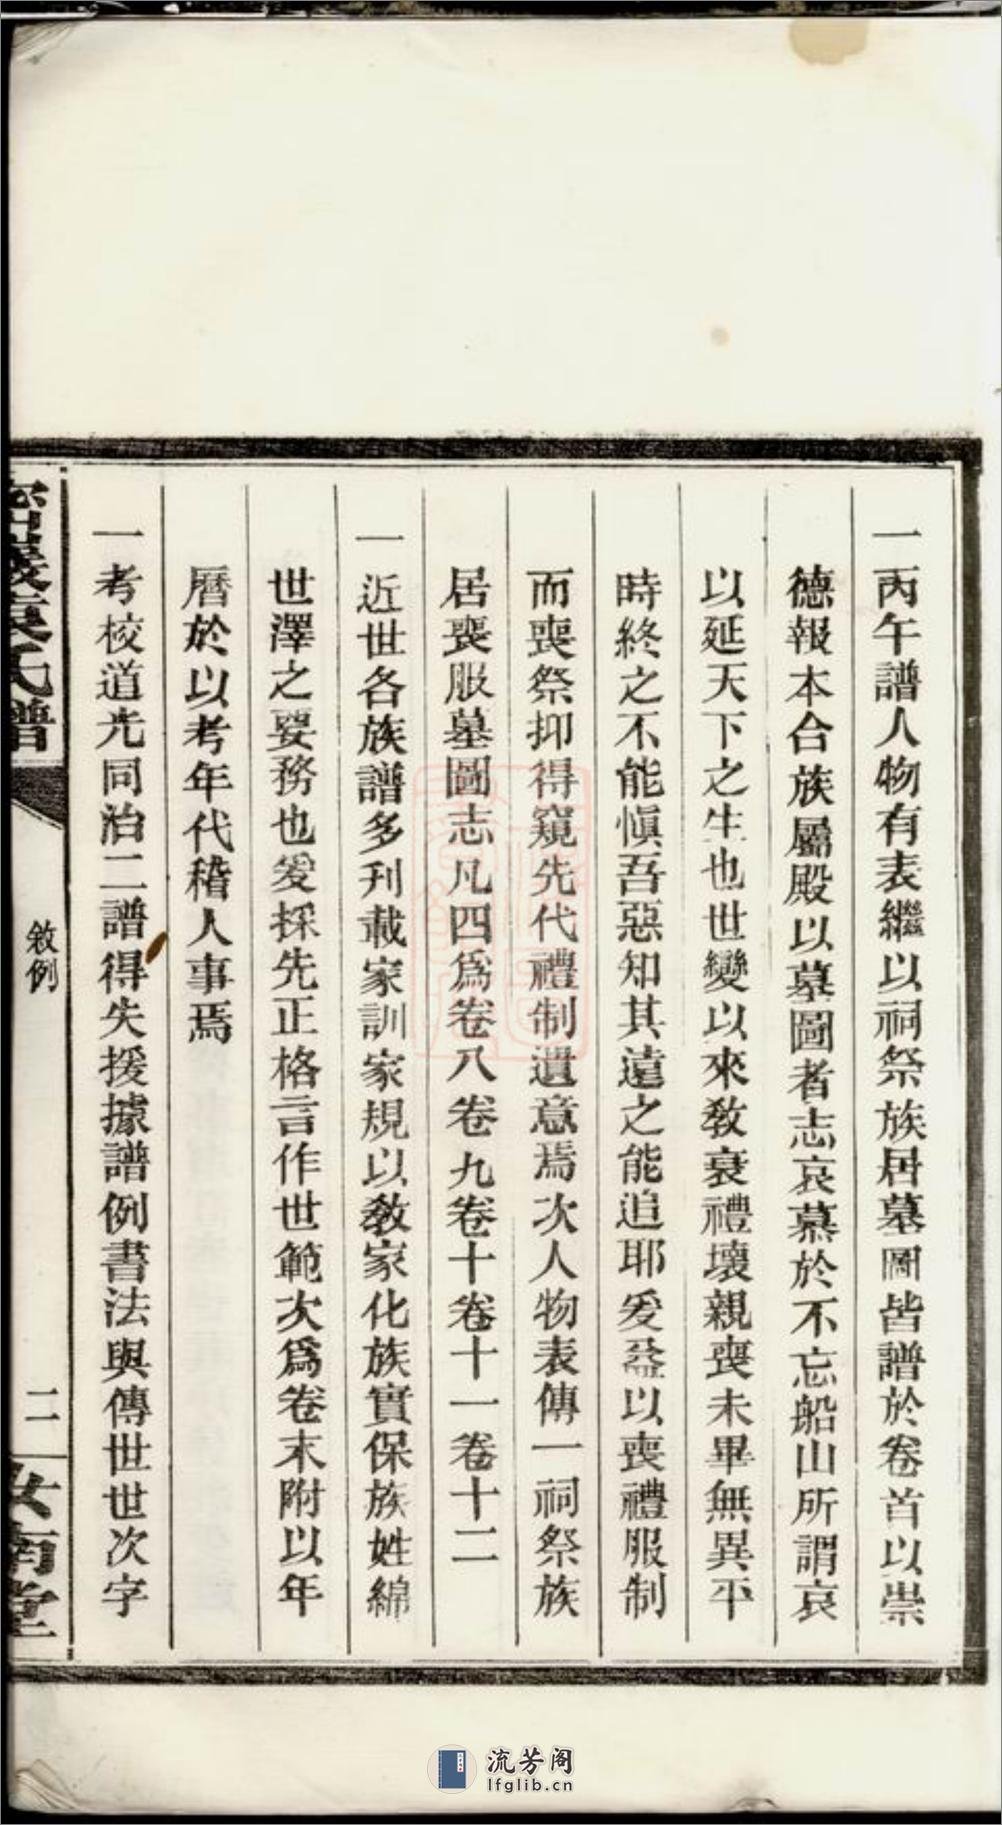 一丙午譜人物有表繼以祠祭族居墓圖皆譜於卷首以崇
德報本合族屬殿以墓圖者志哀慕於不忘船山所謂哀
以延天下之生也世變以來教衰禮壞親喪未畢無異平
時終之不能愼吾惡知其遠之能追耶爰益以喪禮服制
而喪祭抑得窺先代禮制遺意焉次人物表傳一祠祭族
居喪服墓圖志凡四爲卷八卷九卷十卷十一卷十二
一近世各族譜多刋載家訓家規以敎家化族實保族姓綿
世澤之要務也爰採先正格言作世範次爲卷末附以年
曆於以考年代稽人事焉
一考校道光同治二譜得失援據譜例書法與傳世世次字
氏譜
敘例
二
汝南堂
流芳阁
lfglib.cn